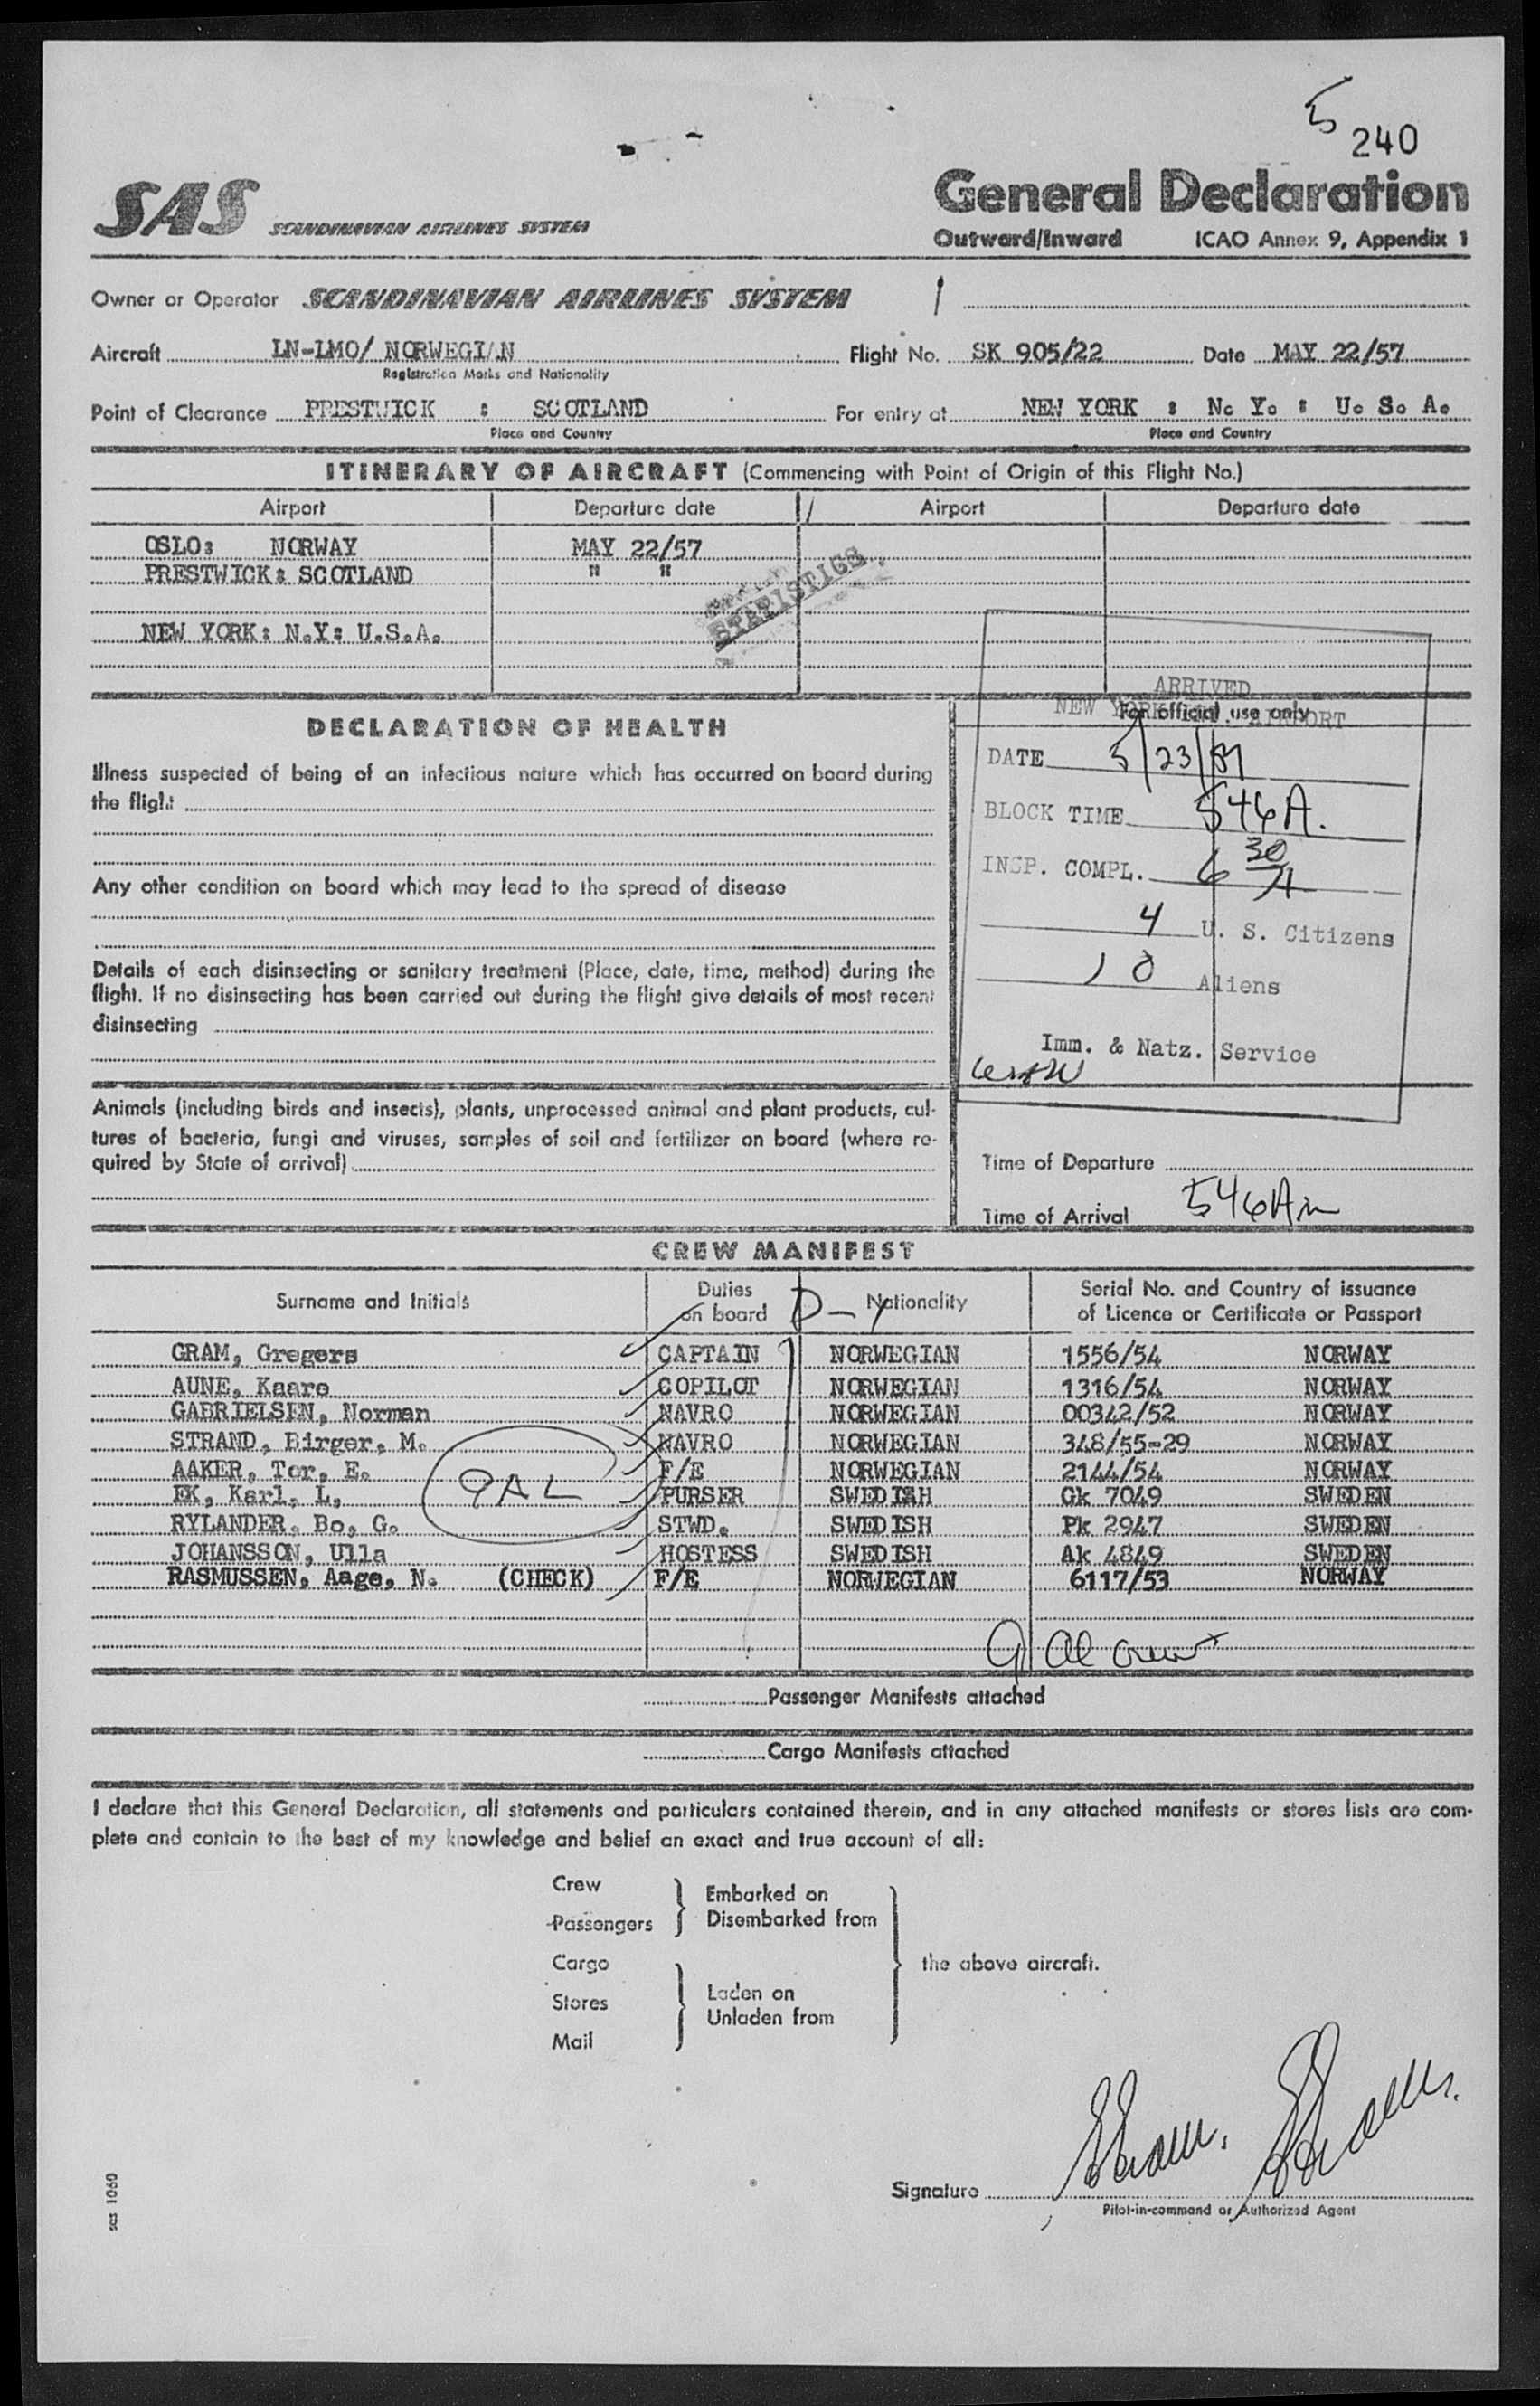 5
240
SAS SCANDINAVIAN AIRLINES SYSTEM
General Declaration
Outward/Inward ICAO Annex 9, Appendix 1
Owner or Operator SCANDINAVIAN AIRLINES SYSTEM
Aircraft LN-LMO/ NORWEGIAN Flight No. SK 905/22 Date MAY 22/57
Registration Marks and Nationality
Point of Clearance PRESTWICK : SCOTLAND For entry at NEW YORK : N. Y. : U. S. A.
Place and Country Place and Country
ITINERARY OF AIRCRAFT (Commencing with Point of Origin of this Flight No.)
Airport Departure date Airport Departure date
OSLO: NORWAY MAY 22/57
PRESTWICK: SCOTLAND " "
STATISTICS
NEW YORK: N.Y: U.S.A.
ARRIVED
NEW YORK INT. AIRPORT
For official use only
DECLARATION OF HEALTH
Illness suspected of being of an infectious nature which has occurred on board during
the flight
Any other condition on board which may lead to the spread of disease
Details of each disinsecting or sanitary treatment (Place, date, time, method) during the
flight. If no disinsecting has been carried out during the flight give details of most recent
disinsecting
Animals (including birds and insects), plants, unprocessed animal and plant products, cul-
tures of bacteria, fungi and viruses, samples of soil and fertilizer on board (where re-
quired by State of arrival)
DATE 5/23/57
BLOCK TIME 546 A.
INSP. COMPL. 6 30 A
4 U. S. Citizens
10 Aliens
Imm. & Natz. Service
Time of Departure
Time of Arrival 546 Am
CREW MANIFEST
Surname and Initials Duties on board Nationality Serial No. and Country of issuance
of Licence or Certificate or Passport
D-1
GRAM, Gregers CAPTAIN NORWEGIAN 1556/54 NORWAY
AUNE, Kaare COPILOT NORWEGIAN 1316/54 NORWAY
GABRIELSEN, Norman NAVRO NORWEGIAN 00342/52 NORWAY
STRAND, Birger, M. NAVRO NORWEGIAN 348/55-29 NORWAY
AAKER, Tor, E. F/E NORWEGIAN 2144/54 NORWAY
EK, Karl, L, PURSER SWEDISH Gk 7049 SWEDEN
9AL
RYLANDER, Bo, G. STWD. SWEDISH Pk 2947 SWEDEN
JOHANSSON, Ulla HOSTESS SWEDISH Ak 4849 SWEDEN
RASMUSSEN, Aage, N. (CHECK) F/E NORWEGIAN 6117/53 NORWAY
9 al crew
Passenger Manifests attached
Cargo Manifests attached
I declare that this General Declaration, all statements and particulars contained therein, and in any attached manifests or stores lists are com-
plete and contain to the best of my knowledge and belief an exact and true account of all:
Crew
Passengers
Embarked on
Disembarked from
Cargo
Stores
Mail
Laden on
Unladen from
the above aircraft.
Signature
Pilot-in-command or Authorized Agent
sas 1060